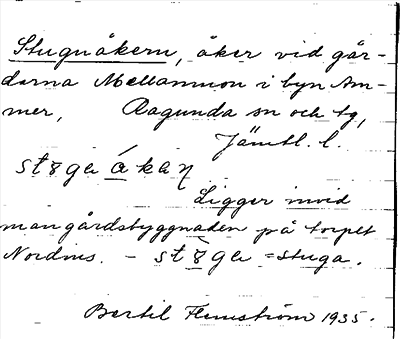 Stugnåkern, åker vid går-
darna Mellanmon i byn Am-
mer, Ragunda sn och tg,
Jämtl. l.
stɞga åkaη
Ligger invid
mangårdsbyggnaden på torpet
Nordnis. - stɞga = stuga.
Bertil Flemström 1935.